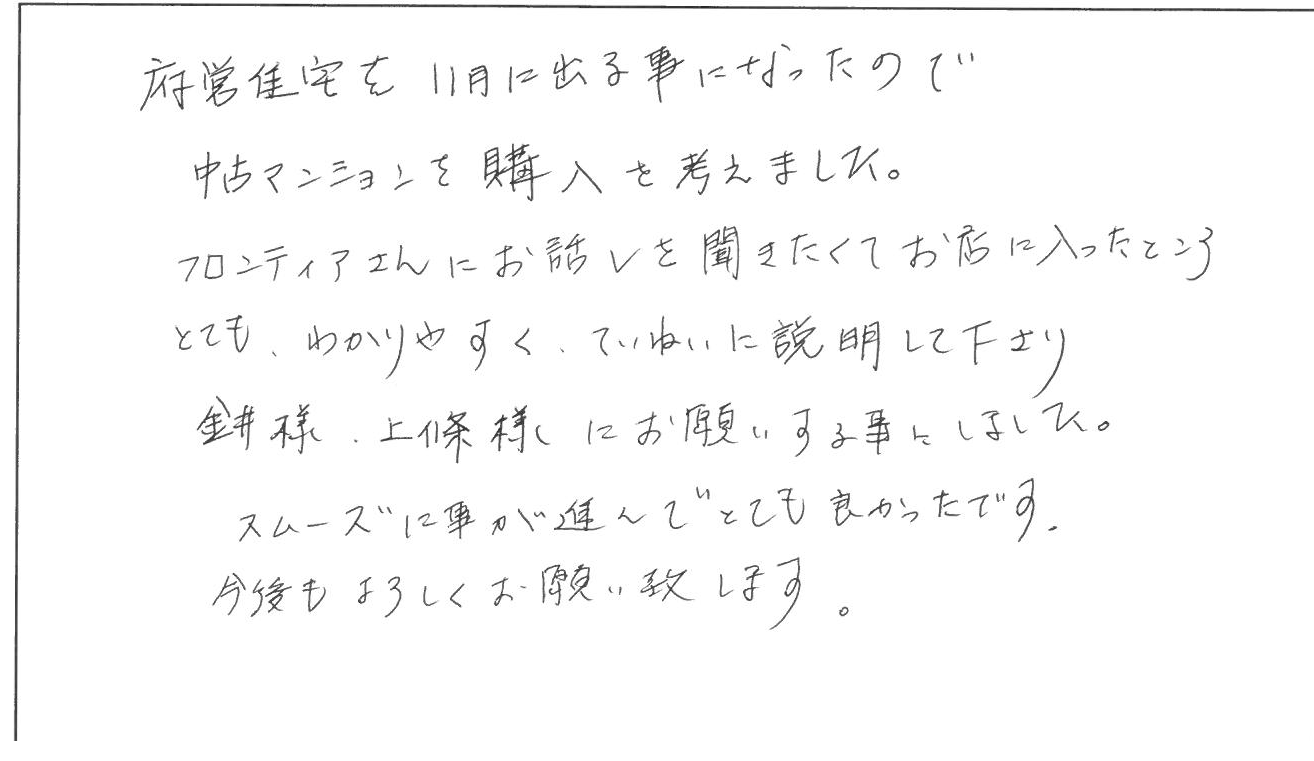 府営住宅を11月に出る事になったので
中古マンションを購入を考えました。
フロンティアさんにお話しを聞きたくてお店に入ったところ
とても、わかりやすく、ていねいに説明して下さり
金井様、上條様にお願いする事にしました。
スムーズに事が進んでとても良かったです。
今後もよろしくお願い致します。